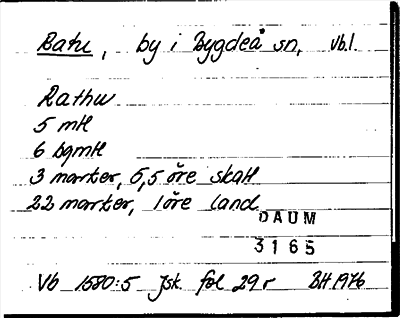 Ratu, by i Bygdeå sn, Vb.l.
Rathu
5 mtl
6 bgmtl
3 marker, 5,5 öre skatt
22 marker, 1 öre land
DAUM
3165
Vb 1580:5 Jsk. fol 29r BH 1976